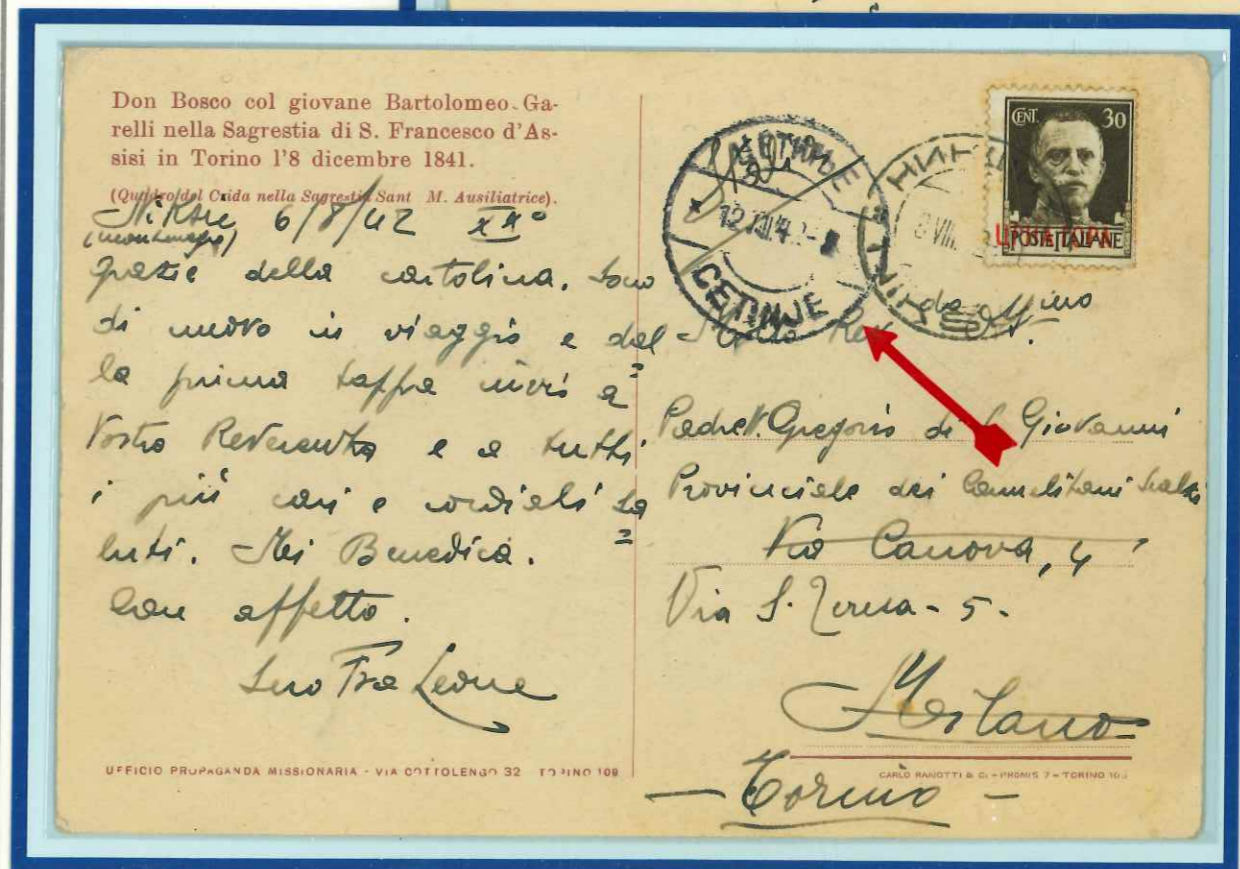 Don Bosco col giovane Bartolomeo Ga-
relli nella Sagrestia di S. Francesco d'As-
sisi in Torino l'8 dicembre 1841.
(Quadro del Crida nella Sagrestia Sant M. Ausiliatrice).
6/8/42 XX°
(Montenegro)
Grazie della cartolina. Sono
di nuovo in viaggio e dal
la prima tappa invio a
Vostra Reverenza e a tutti
i più cari e cordiali sa
luti. Mi Benedica.
Con affetto.
Suo Fra Leone
UFFICIO PROPAGANDA MISSIONARIA - VIA COTTOLENGO 32 TORINO 109
ЦЕТИЊЕ
CETINJE
CENT. 30
POSTE ITALIANE
Molto Rev.
Padre N. Gregorio di S. Giovanni
Provinciale dei Carmelitani Scalzi
Via Canova, 4
Via S. Teresa - 5 -
Milano
- Torino -